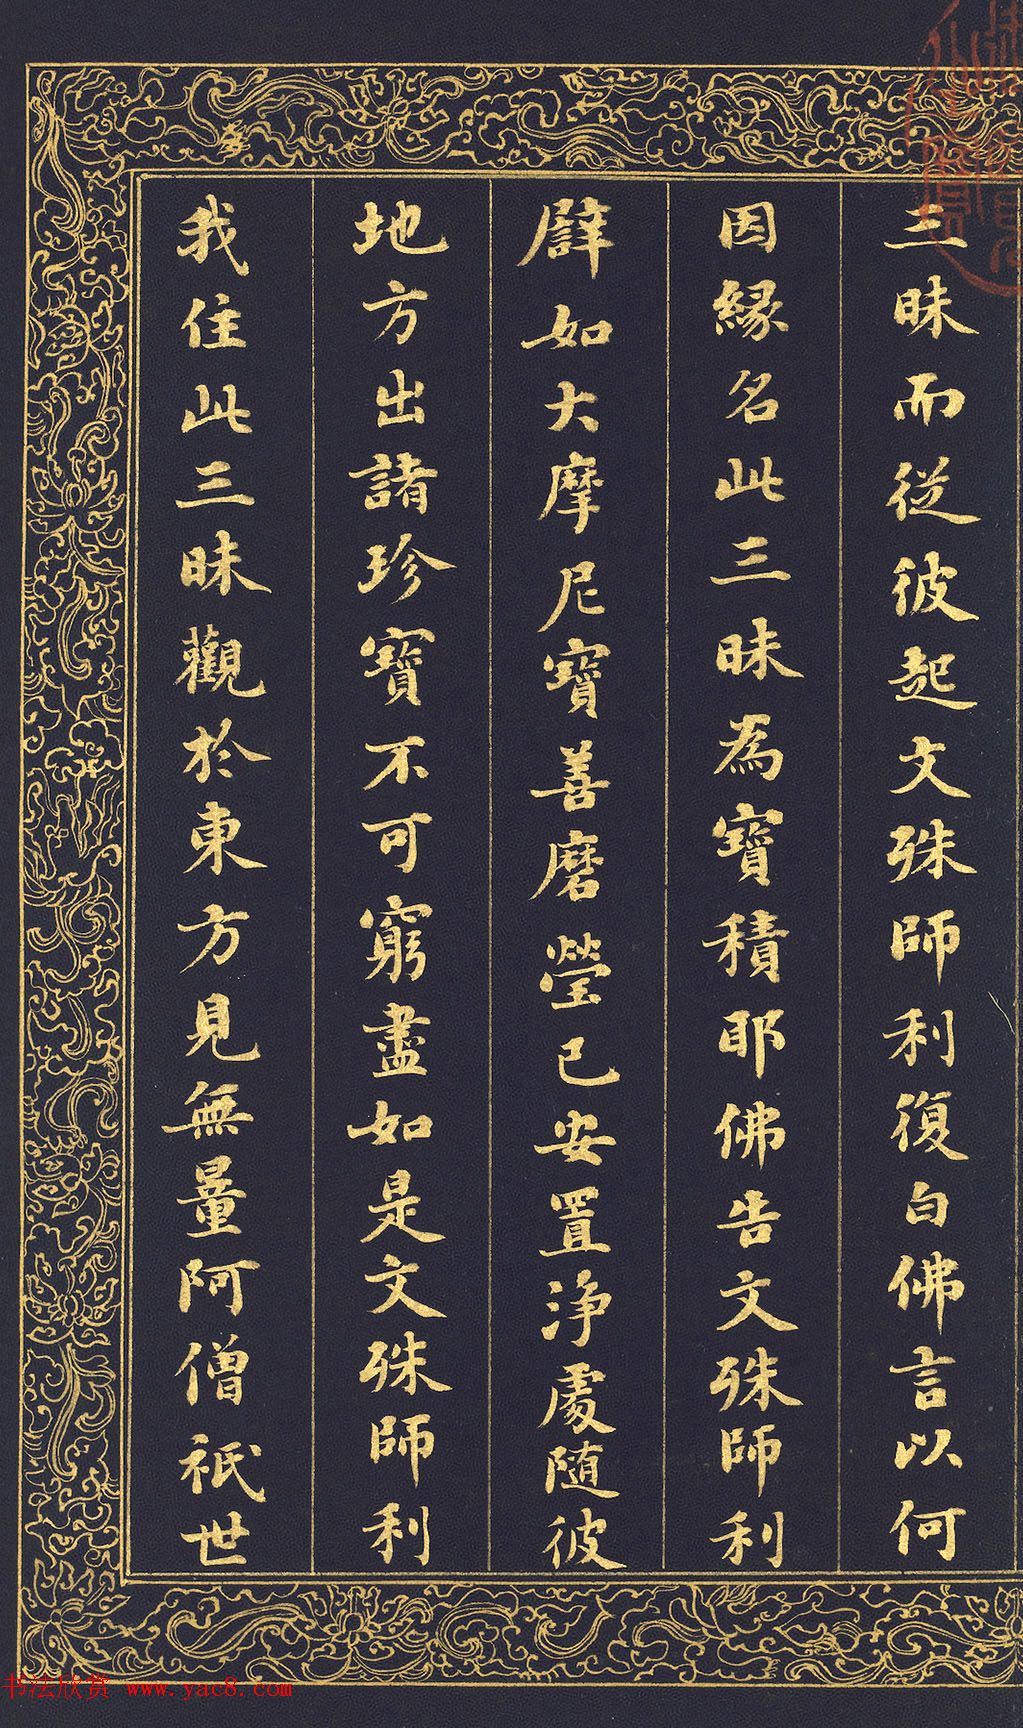 三昧而從彼起文殊師利復白佛言以何
因緣名此三昧為寶積耶佛告文殊師利
譬如大摩尼寶善磨瑩已安置淨處隨彼
地方出諸珍寶不可窮盡如是文殊師利
我住此三昧觀於東方見無量阿僧祇世
书法欣赏 www.yac8.com